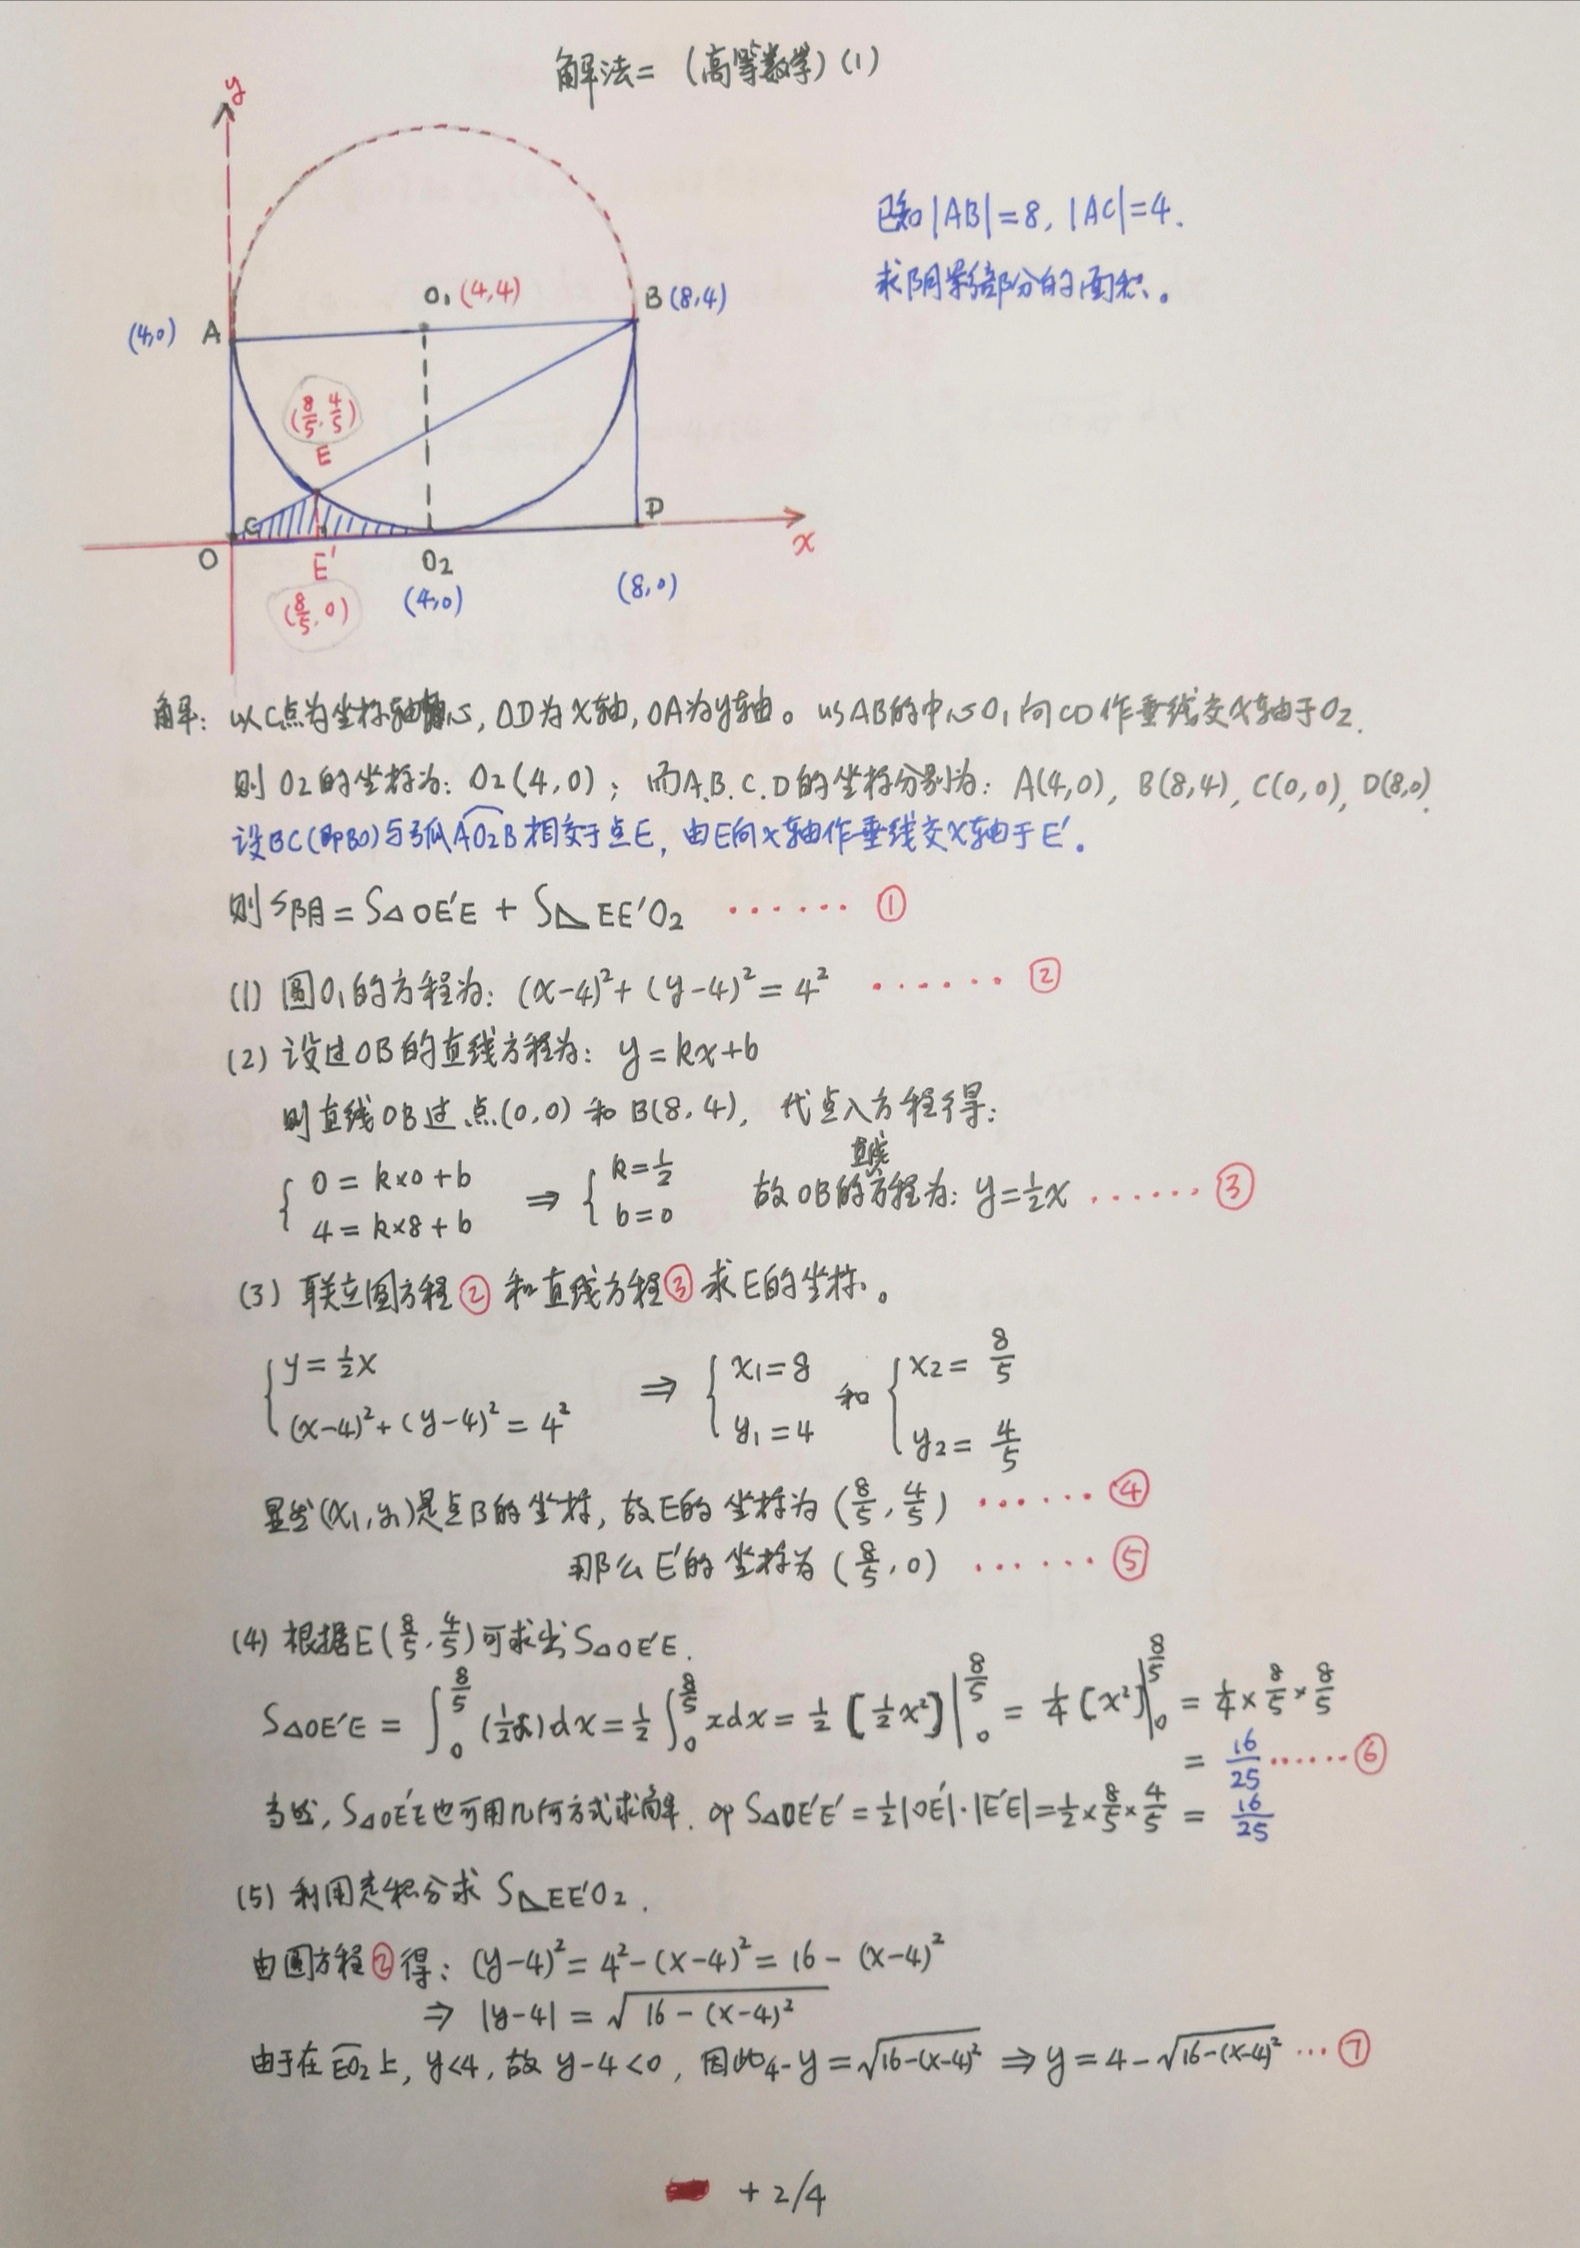 解法二 (高等数学)(1)
y
已知|AB|=8, |AC|=4.
求阴影部分的面积。
O₁ (4,4)
B (8,4)
(4,0) A
(8/5, 4/5)
E
C
D
x
O
E'
O₂
(8/5, 0)
(4,0)
(8,0)
解: 以C点为坐标轴中心, OD为X轴, OA为y轴。由AB的中心O₁向CD作垂线交X轴于O₂.
则O₂的坐标为: O₂(4,0); 而A.B.C.D的坐标分别为: A(4,0), B(8,4), C(0,0), D(8,0).
设BC(即BO)与弧AO₂B相交于点E, 由E向X轴作垂线交X轴于E'.
则S阴 = S△OE'E + S◺EE'O₂ ...... ①
(1) 圆O₁的方程为: (x-4)²+(y-4)²=4² ....... ②
(2) 设过OB的直线方程为: y=kx+b
则直线OB过点(0,0)和B(8,4), 代点入方程得:
{ 0=k×0+b 4=k×8+b ⇒ { k=1/2 b=0 故OB的直线方程为: y=1/2x ...... ③
(3) 联立圆方程②和直线方程③求E的坐标。
{ y=1/2x (x-4)²+(y-4)²=4² ⇒ { x₁=8 y₁=4 和 { x₂=8/5 y₂=4/5
显然(x₁,y₁)是点B的坐标, 故E的坐标为(8/5, 4/5) ...... ④
那么E'的坐标为(8/5, 0) ...... ⑤
(4) 根据E(8/5, 4/5)可求出S△OE'E.
S△OE'E = ∫₀^(8/5) (1/2x)dx = 1/2 ∫₀^(8/5) xdx = 1/2 [1/2x²]|₀^(8/5) = 1/4 [x²]|₀^(8/5) = 1/4 × 8/5 × 8/5
= 16/25 ...... ⑥
当然, S△OE'E也可用几何方式求解. 即S△OE'E' = 1/2|OE'|·|E'E| = 1/2 × 8/5 × 4/5 = 16/25
(5) 利用定积分求 S◺EE'O₂.
由圆方程②得: (y-4)² = 4²-(x-4)² = 16-(x-4)²
⇒ |y-4| = √16-(x-4)²
由于在EO₂上, y<4, 故 y-4<0, 因此4-y=√16-(x-4)² ⇒ y=4-√16-(x-4)² ... ⑦
+2/4